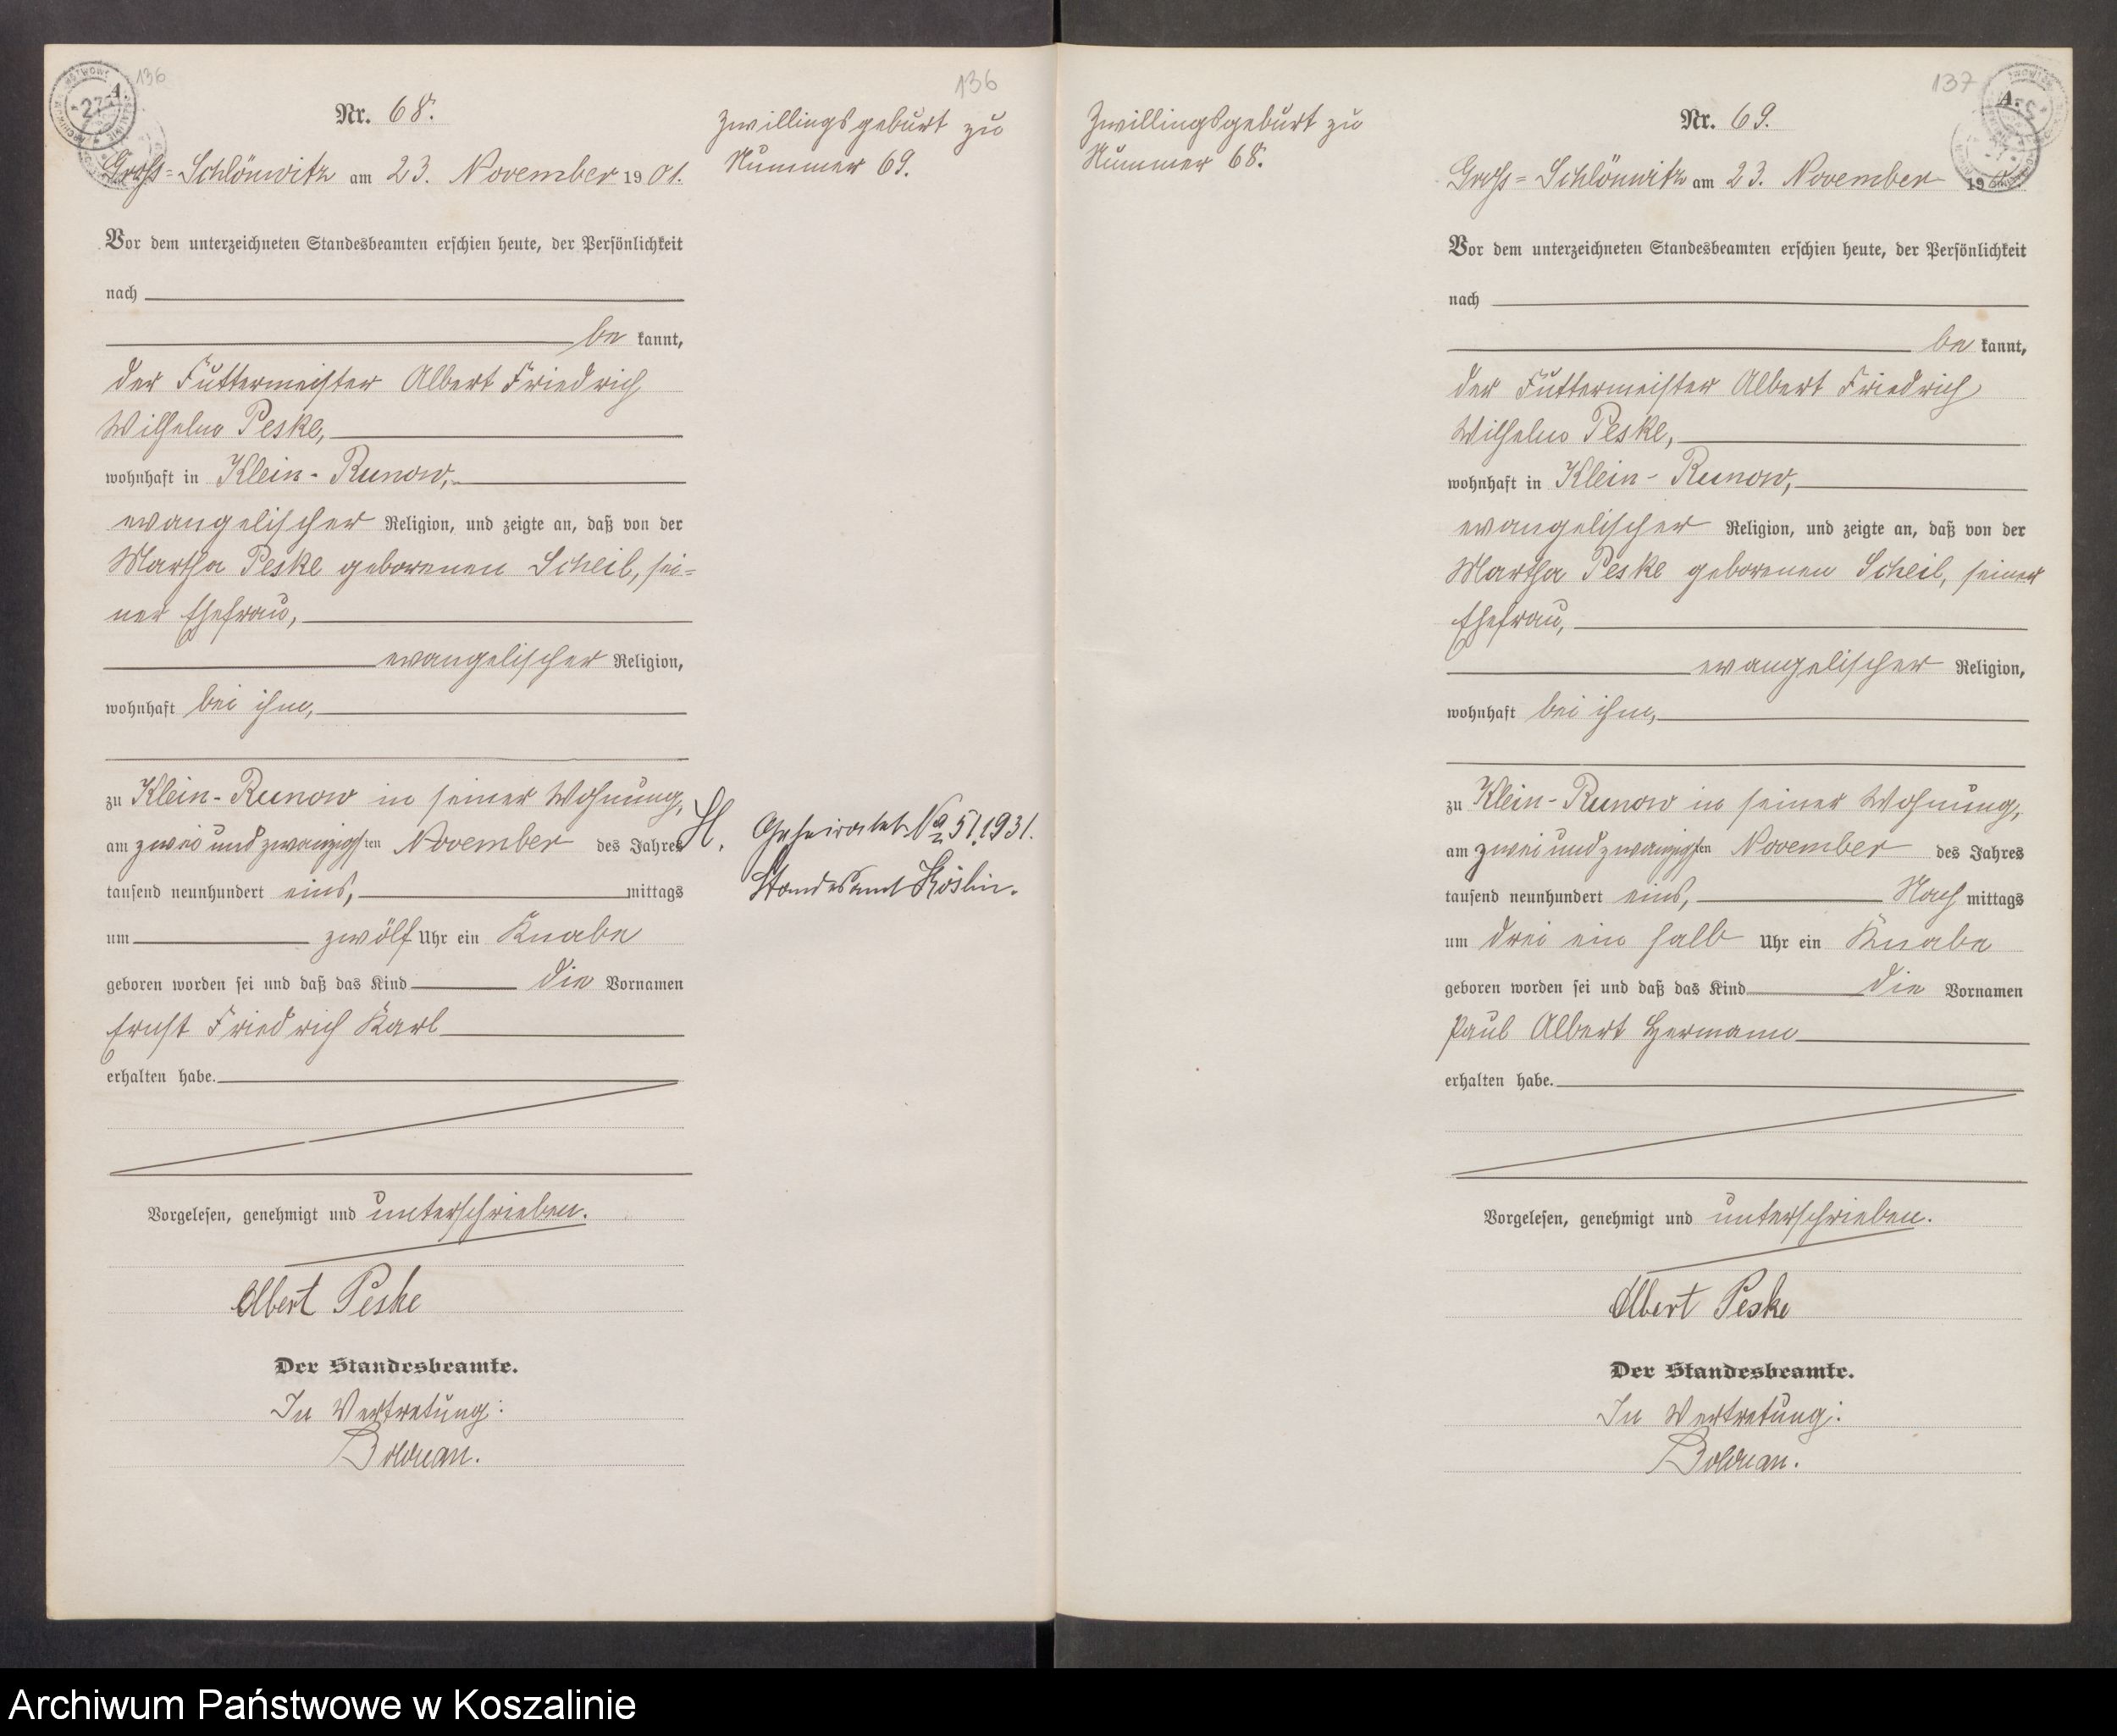 A.
136
Nr. 68.
Groß-Schlönwitz am 23. November 1901.
Vor dem unterzeichneten Standesbeamten erschien heute, der Persönlichkeit
nach
be kannt,
der Futtermeister Albert Friedrich
Wilhelm Peske,
wohnhaft in Klein-Runow,
evangelischer Religion, und zeigte an, daß von der
Martha Peske geborenen Scheil, sei-
ner Ehefrau,
evangelischer Religion,
wohnhaft bei ihm,
zu Klein-Runow in seiner Wohnung,
am zwei und zwanzigsten November des Jahres
tausend neunhundert eins, mittags
um zwölf Uhr ein Knabe
geboren worden sei und daß das Kind die Vornamen
Ernst Friedrich Karl
erhalten habe.
Vorgelesen, genehmigt und unterschrieben.
Albert Peske
Der Standesbeamte.
In Vertretung:
136
Zwillingsgeburt zu
Nummer 69.
H. Geheiratet No 51/1931.
Standesamt Köslin.
Zwillingsgeburt zu
Nummer 68.
137
A.
Nr. 69.
Groß-Schlönwitz am 23. November 190
Vor dem unterzeichneten Standesbeamten erschien heute, der Persönlichkeit
nach
be kannt,
der Futtermeister Albert Friedrich
Wilhelm Peske,
wohnhaft in Klein-Runow,
evangelischer Religion, und zeigte an, daß von der
Martha Peske geborenen Scheil, seiner
Ehefrau,
evangelischer Religion,
wohnhaft bei ihm,
zu Klein-Runow in seiner Wohnung,
am zwei und zwanzigsten November des Jahres
tausend neunhundert eins, Nach mittags
um drei ein halb Uhr ein Knabe
geboren worden sei und daß das Kind die Vornamen
Paul Albert Hermann
erhalten habe.
Vorgelesen, genehmigt und unterschrieben.
Albert Peske
Der Standesbeamte.
In Vertretung:
Archiwum Państwowe w Koszalinie